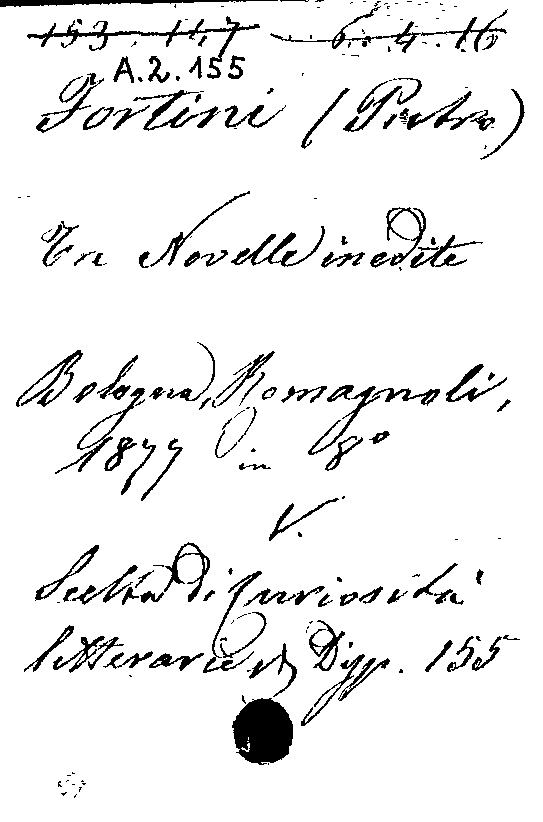 153. 147 6. 4. 16
A.2.155
Fortini (Pietro)
Tre Novelle inedite
Bologna, Romagnoli,
1877 in 8º
V.
Scelta di Curiosità
letterarie Disp. 155